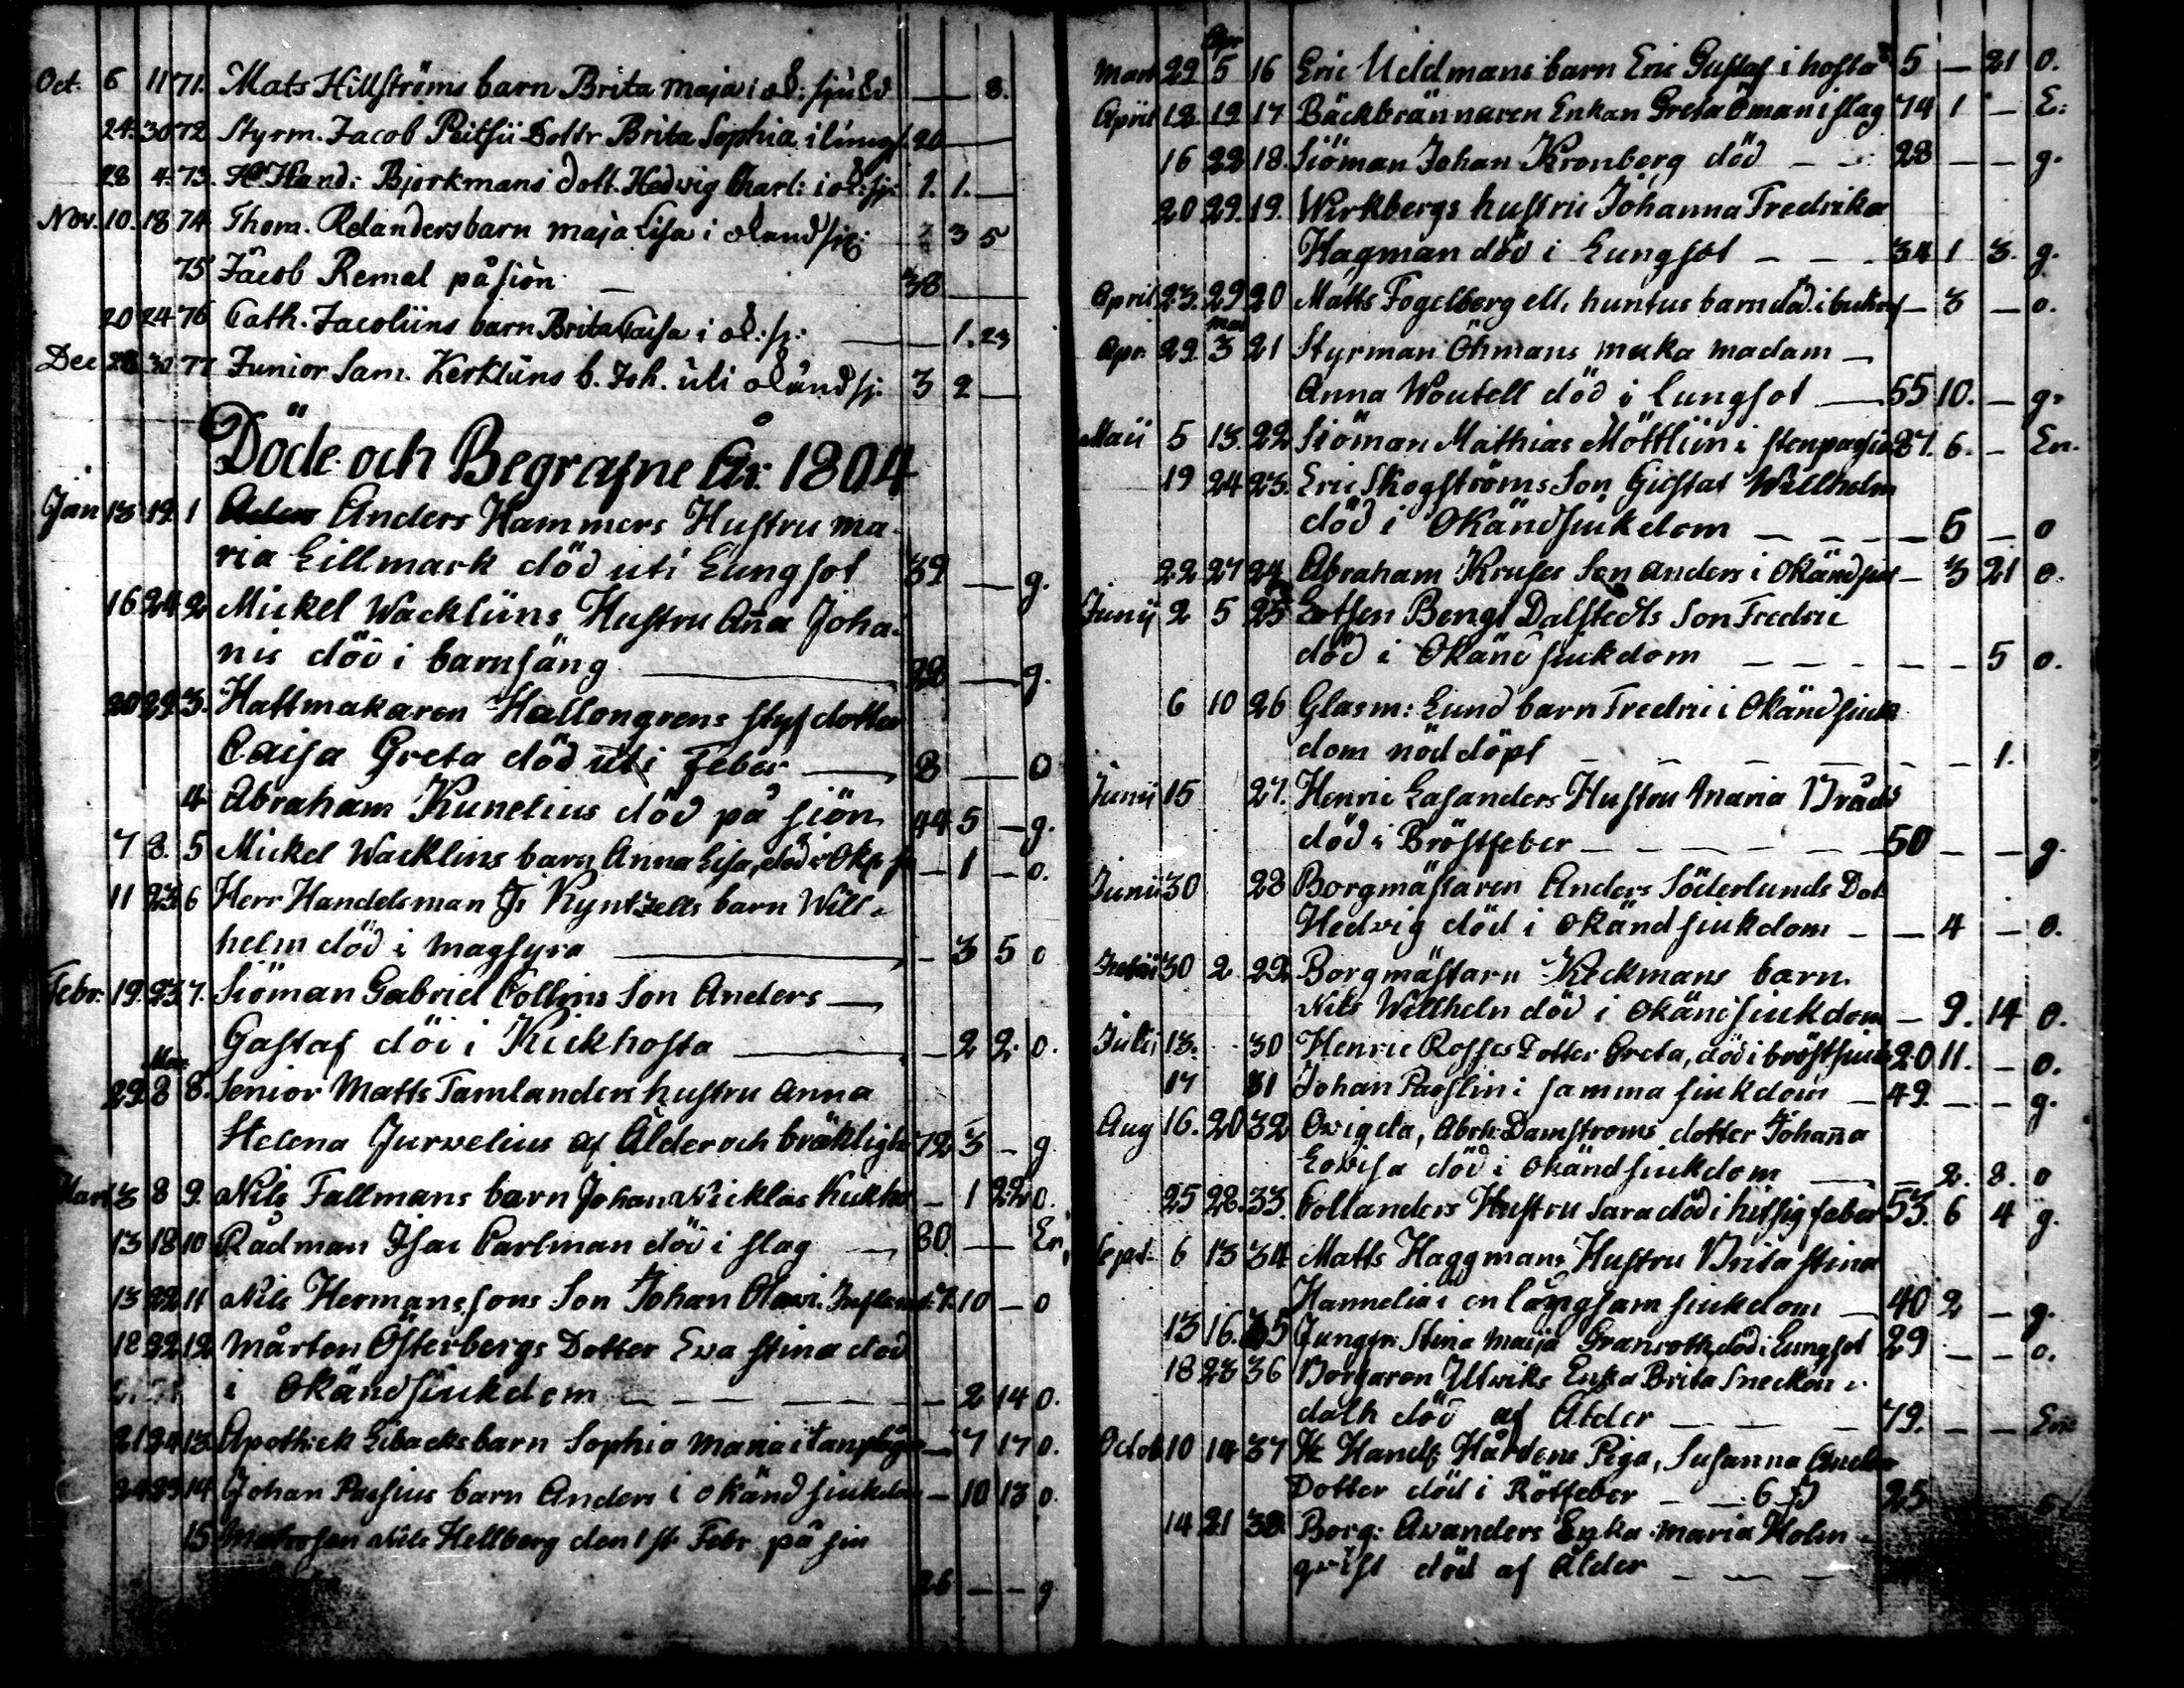 Oct. 6 11 71. Mats Hillströms barn Brita Maja i ok: sjukd — 8.
24. 30 72 Styrm. Jacob Peitsii Dottr Brita Sophia i lungs. 20 —
28 4. 73. Hr Hand: Bjorkmans dott. Hedvig Charl: i ok: sj: 1. 1. —
Nov. 10. 18 74 Thom. Relanders barn Maja Lisa i okand sj: 3 5
75 Jacob Remal på siön — 38 —
20 24 76 Cath. Jacoliins barn Brita Caisa i ok: sj: — 1. 23
Dec 28 30 77 Junior Sam. Kerkliins b. Joh. uti okänd sj: 3 2 —
Döde och Begrafne År 1804
Jan 13 19. 1 Anders Hammers Hustru Ma-
ria Lillmark död uti Lungsot 39 — g.
16 24 2 Mickel Wackliins Hustru Aña Joha-
nis död i barnsäng — 28 — g.
20 29. 3. Hattmakaren Hallongrens styfdotter
Caisa Greta död uti Feber — 8 — o
4 Abraham Kunelius död på siön 44 5 — g.
7 8. 5 Mickel Wacklins barn Anna Lisa, död i Okä sj — 1 — o.
11 23 6 Herr Handelsman J: Kyntzells barn Will-
helm död i Magsyra — 3 5 o
Febr. 19. 23 7. Siöman Gabriel Collins Son Anders —
Gustaf död i Kickhosta — 2 2. o.
Mar
29. 8 8. Senior Matts Tamlanders hustru Anna
Helena Jurvelius af Ålder och bräkligh 72 3 — g
Mart 3 8 9. Nils Fallmans barn Johan Nicklas Kikho — 1 22 o.
13 18 10 Rådman Isac Carlman död i slag — 80 — En.
13 22 11 Nils Hermanssons Son Johan 7. 10 — o
18 22 12 Mårten Österbergs Dotter Eva Stina död
i Okänd siukdom — — — 2 14 o.
21 24 13. Apothek Libacks barn Sophia Maria i tanplåg — 7 17 o.
24 29 14 Johan Paesius barn Anders i okänd siukdom — 10 13 o.
15 Matrosen Nils Hellberg den 1st Febr. på siu
26 — — g
Apr
Mart 29 5 16 Eric Uddmans barn Eric Gustaf i hosta 5 — 21 o.
April 12. 19. 17 Bäckbrännaren Enkan Greta Öman i slag 74 1 — E:
16 22 18. Siöman Johan Kronberg död — 28 — — g.
20 29. 19. Wirkbergs hustru Johanna Fredrika
Hagman död i Lungsot — — 34 1 3. g.
April 23. 29 20 Matts Fogelberg ell. huntus barn död i bukref — 3 — o.
Mai
Apr. 29. 3 21 Styrman Öhmans maka Madam —
Anna Woutell död i Lungsot — 55 10. — g.
Maii 5 13. 22 Siöman Mathias Möttliin i stenpassion 37. 6. — En.
19 24 23. Eric Skogströms Son Gustaf Willhelm
död i Okänd siukdom — — — 5 — o
22 27 24 Abraham Kruses Son Anders i Okänd siuk — 3 21 o.
Junij 2 5 25 Lotsen Bengt Dalstedts Son Fredric
död i Okänd siukdom — — — — 5 o.
6 10 26 Glasm: Lund barn Fredric i Okänd siuk
dom nöddöpt — — — — 1.
Junij 15 27. Henric Lasanders Hustru Maria Bråds
död i Bröstfeber — — — 50 — — g.
Junii 30 28 Borgmästaren Anders Söderlunds Dot
Hedvig död i okänd siukdom — — 4 — o.
30 2 29 Borgmästarn Kickmans barn
Nils Willhelm död i okänd siukdom — 9. 14 o.
Julii 13. 30 Henric Rosses Dotter Greta, död i bröstsiuk 20 11. — o.
17 31 Johan Paeslin i samma siukdom — 49. — — g.
Aug 16. 20 32 Ovigda, Abrh: Damstroms dotter Johaña
Lovisa död i okänd siukdom — — 2. 8. o
25 28. 33. Collanders Hustru Sara död i hitsig feber 53. 6 4 g.
Sept. 6 13 34 Matts Haggmans Hustru Brita Stina
Hannelia i en långsam siukdom — 40 2 — g.
13 16. 35 Jungfr: Stina Maija Granroth, död i Lungsot 29 — — o.
18 23 36 Borgaren Ulwiks Enka Brita
död af Ålder — — 79. — — En:
Octob 10 14 37 Hr Handl: Hårdens Piga, Susanna Anders
Dotter död i Rötfeber — — 6 25
14 21 38. Borg: Avanders Enka Maria Holm-
qvist död af Ålder — — —